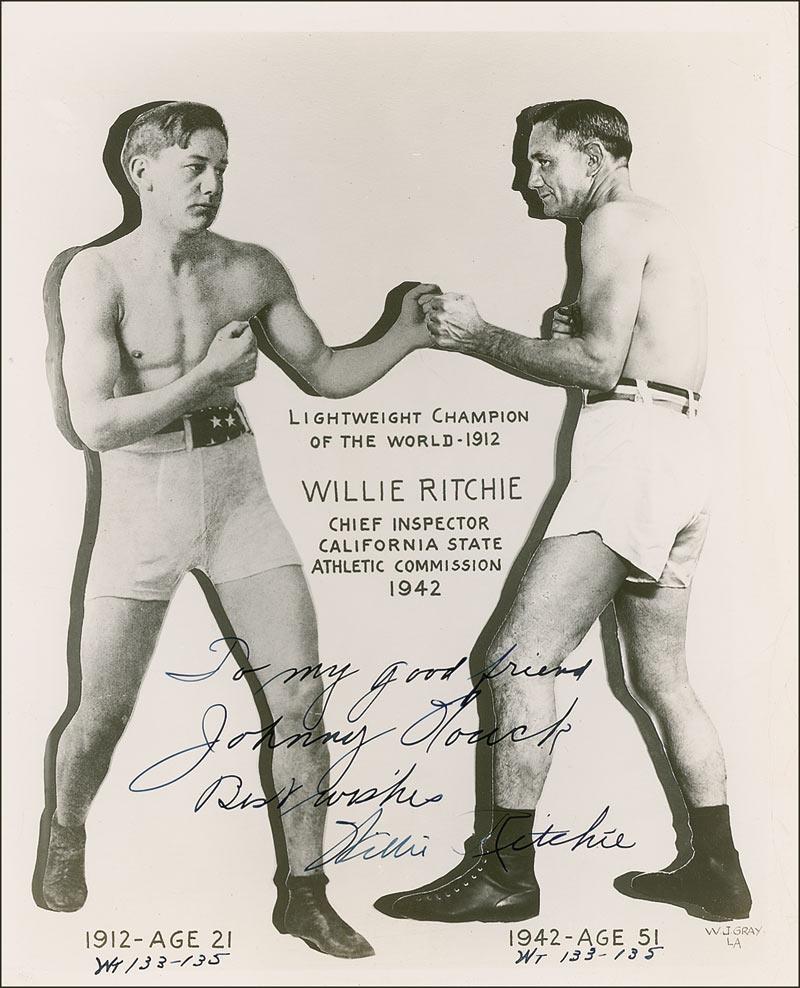 LIGHTWEIGHT CHAMPION
OF THE WORLD-1912
WILLIE RITCHIE
CHIEF INSPECTOR
CALIFORNIA STATE
ATHLETIC COMMISSION
1942
To my good friend
Johnny Houck
Best wishes
Willie Ritchie
1912-AGE 21
WT 133-135
1942-AGE 51
WT 133-135
W.J. GRAY
LA